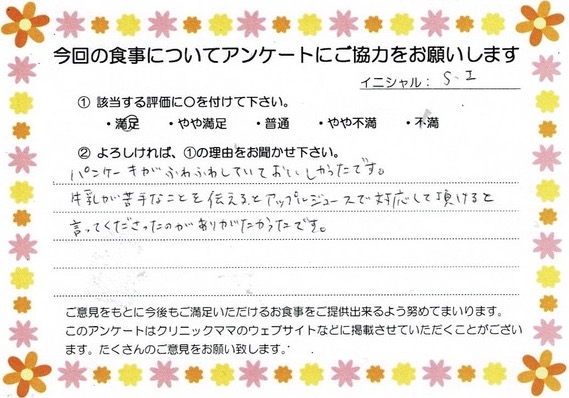 今回の食事についてアンケートにご協力をお願いします
イニシャル： S.I
① 該当する評価に○を付けて下さい。
・満足 ・やや満足 ・普通 ・やや不満 ・不満
② よろしければ、①の理由をお聞かせ下さい。
パンケーキがふわふわしていておいしかったです。
牛乳が苦手なことを伝えるとアップルジュースで対応して頂けると
言ってくださったのがありがたかったです。
ご意見をもとに今後もご満足いただけるお食事をご提供出来るよう努めてまいります。
このアンケートはクリニックママのウェブサイトなどに掲載させていただくことがござい
ます。たくさんのご意見をお願い致します。